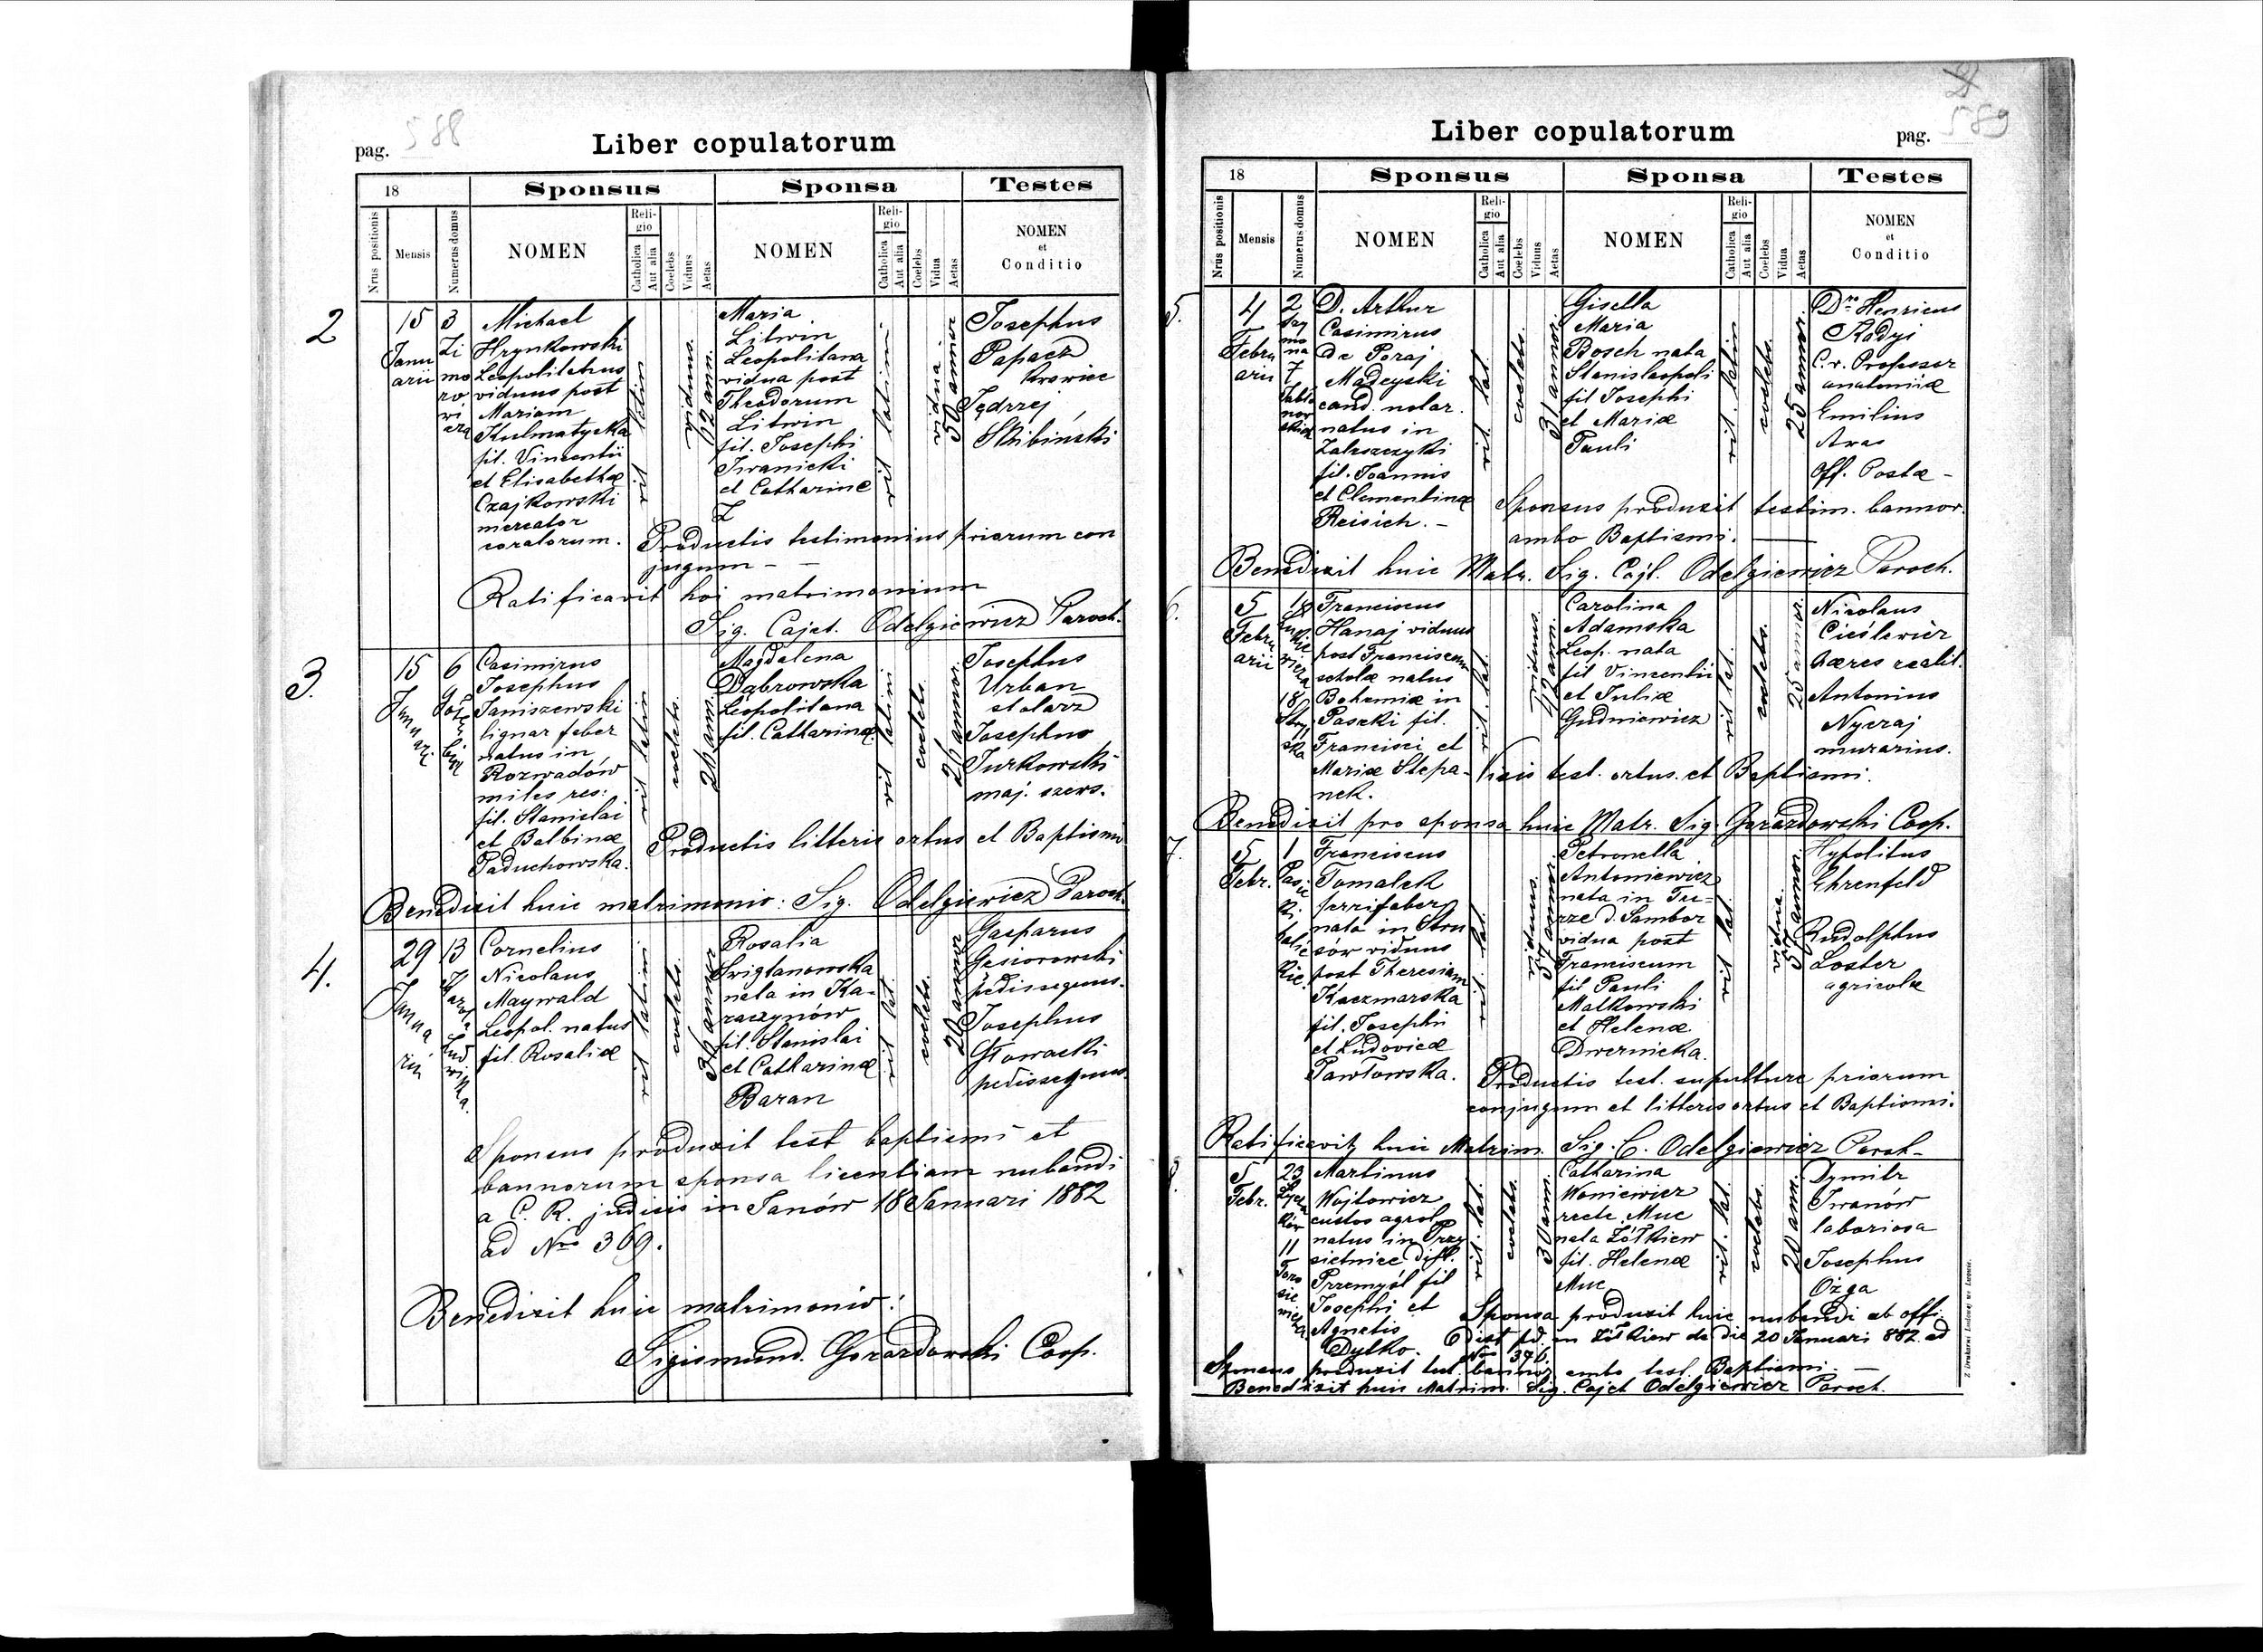 pag. 588
Liber copulatorum
18
Sponsus
Sponsa
Testes
Nrus positionis
Mensis
Numerus domus
NOMEN
Religio
Catholica
Aut alia
Coelebs
Viduus
Aetas
NOMEN
Religio
Catholica
Aut alia
Coelebs
Vidua
Aetas
NOMEN
et
Conditio
2
15
Janu
arii
3
Zi
mo
ro
wi
cza
Michael
Hrynkowski
viduus post
Mariam
Kulmatycka
fil. Vincentii
et Elisabethæ
Czajkowski
mercator
coralorum.
rit latin
viduus
52 ann.
Maria
Litwin
Leopolitana
vidua post
Theodorum
Litwin
fil. Josephi
Iwanicki
et Catharine
Z
rit latini
vidua
50 annor
Josephus
Papacz
krawiec
Jędrzej
Skibiński
Productis testimonius priorum con
jugum - -
Ratificavit hoi matrimonium
Sig. Cajet. Odelgiewicz Paroch.
3.
15
Januari
6
Casimirus
Josephus
Janiszewski
lignar faber
natus in
Rozwadów
miles res:
fil. Stanislai
et Balbinæ
Paduchowska.
rit latin
coelebs
26 ann.
Magdalena
Dąbrowska
Leopolitana
fil. Catharinæ
rit latini
coelebs.
26 annor.
Josephus
Urban
stolarz
Josephus
Jurkowski
maj. szews.
Productis litteris ortus et Baptismi
Benedixit huic matrimonio: Sig. Odelgiewicz Paroch.
4.
29
Janua
rii
13
Cornelius
Nicolaus
Maywald
Leopol. natus
fil. Rosaliæ
rit latini
coelebs.
36 annor
Rosalia
nata in Ka-
raczynów
fil. Stanislai
et Catharinæ
Baran
rit lat.
coelebs.
20 annor
Gasparus
Gesiorowski
pedissequus.
Josephus
Głowacki
pedissequus.
Sponsus produxit test baptismi et
bannorum sponsa licentiam nubendi
a C. R. judicis in Janów 18 Januari 1882
ad Nro 369.
Benedixit huic matrimonio:
Sigismund. Gorazdowski Coop.
pag. 589
Liber copulatorum
18
Sponsus
Sponsa
Testes
Nrus positionis
Mensis
Numerus domus
NOMEN
Religio
Catholica
Aut alia
Coelebs
Viduus
Aetas
NOMEN
Religio
Catholica
Aut alia
Coelebs
Vidua
Aetas
NOMEN
et
Conditio
5.
4
Febru
arii
2
7
D. Arthur
Casimirus
de Poraj
Madeyski
cand. notar.
natus in
Zaleszczyki
fil. Joannis
et Clementinæ
Reisich. -
rit lat.
coelebs.
31 annor.
Gisella
Maria
Bosch nata
Stanislaopoli
fil Josephi
et Mariæ
Pauli
rit latin
coelebs.
25 annor.
Dr. Henricus
Kadyi
C. r. Professor
anatomiæ
Emilius
Aras
Off. Postæ -
Sponsus produxit testim. bannor.
ambo Baptismi.
Benedixit huic Matr. Sig. Cajt. Odelgiewicz Paroch.
6.
5
Febru
arii
18
Stryj
ska
Franciscus
Hanaj viduus
post Franciscam
natus
Bohemiæ in
Paseki fil.
Francisci et
Mariæ Stepa-
nek.
rit lat.
viduus.
Carolina
Adamska
Leop. nata
fil Vincentii
et Juliæ
Gudniewicz
rit lat.
coelebs.
25 annor.
Nicolaus
Cieślewicz
hæres realit.
Antonius
Nyczaj
murarius.
Visis test. ortus et Baptismi.
Benedixit pro sponsa huic Matr. Sig. Gorazdowski Coop.
7.
5
Febr.
1
Franciscus
Tomalek
ferrifaber
nata in Stru
sów viduus
post Theresiam
Kaczmarska
fil. Josephi
et Ludovicæ
Pawłowska.
rit lat.
viduus.
Petronella
Antoniewicz
nata in Tu-
rze d. Sambor
vidua post
Franciscum
fil Pauli
Malkowski
et Helenæ
Dwernicka.
rit lat.
vidua.
Hypolitus
Ehrenfeld
Rudolphus
Loster
agricolæ
Productis test. sepulturæ priorum
conjugum et litteris ortus et Baptismi.
Ratificavit huic Matrim. Sig. C. Odelgiewicz Paroch-
8.
5
Febr.
23
11
Martinus
Wojtowicz
custos agrol
natus in Prze
sietnice dist.
Przemyśl fil
Josephi et
Agnetis
Dytko.
rit lat.
coelebs.
30 ann.
Catharina
Woniewicz
recte Muc
nata Żółkiew
fil. Helenæ
Muc
rit lat.
coelebs.
20 ann.
Dymitr
Iwanów
laboriosa
Josephus
Ożga
Sponsa produxit huic nubendi ab offi.
Dist pd. in Żółkiew de die 20 Januari 882 ad
Nro 376.
Sponsus produxit test. bannor, ambo test. Baptismi. -
Benedixit huic Matrim. Sig. Cajet Odelgiewicz Paroch.
Z Drukarni Ludowej we Lwowie.